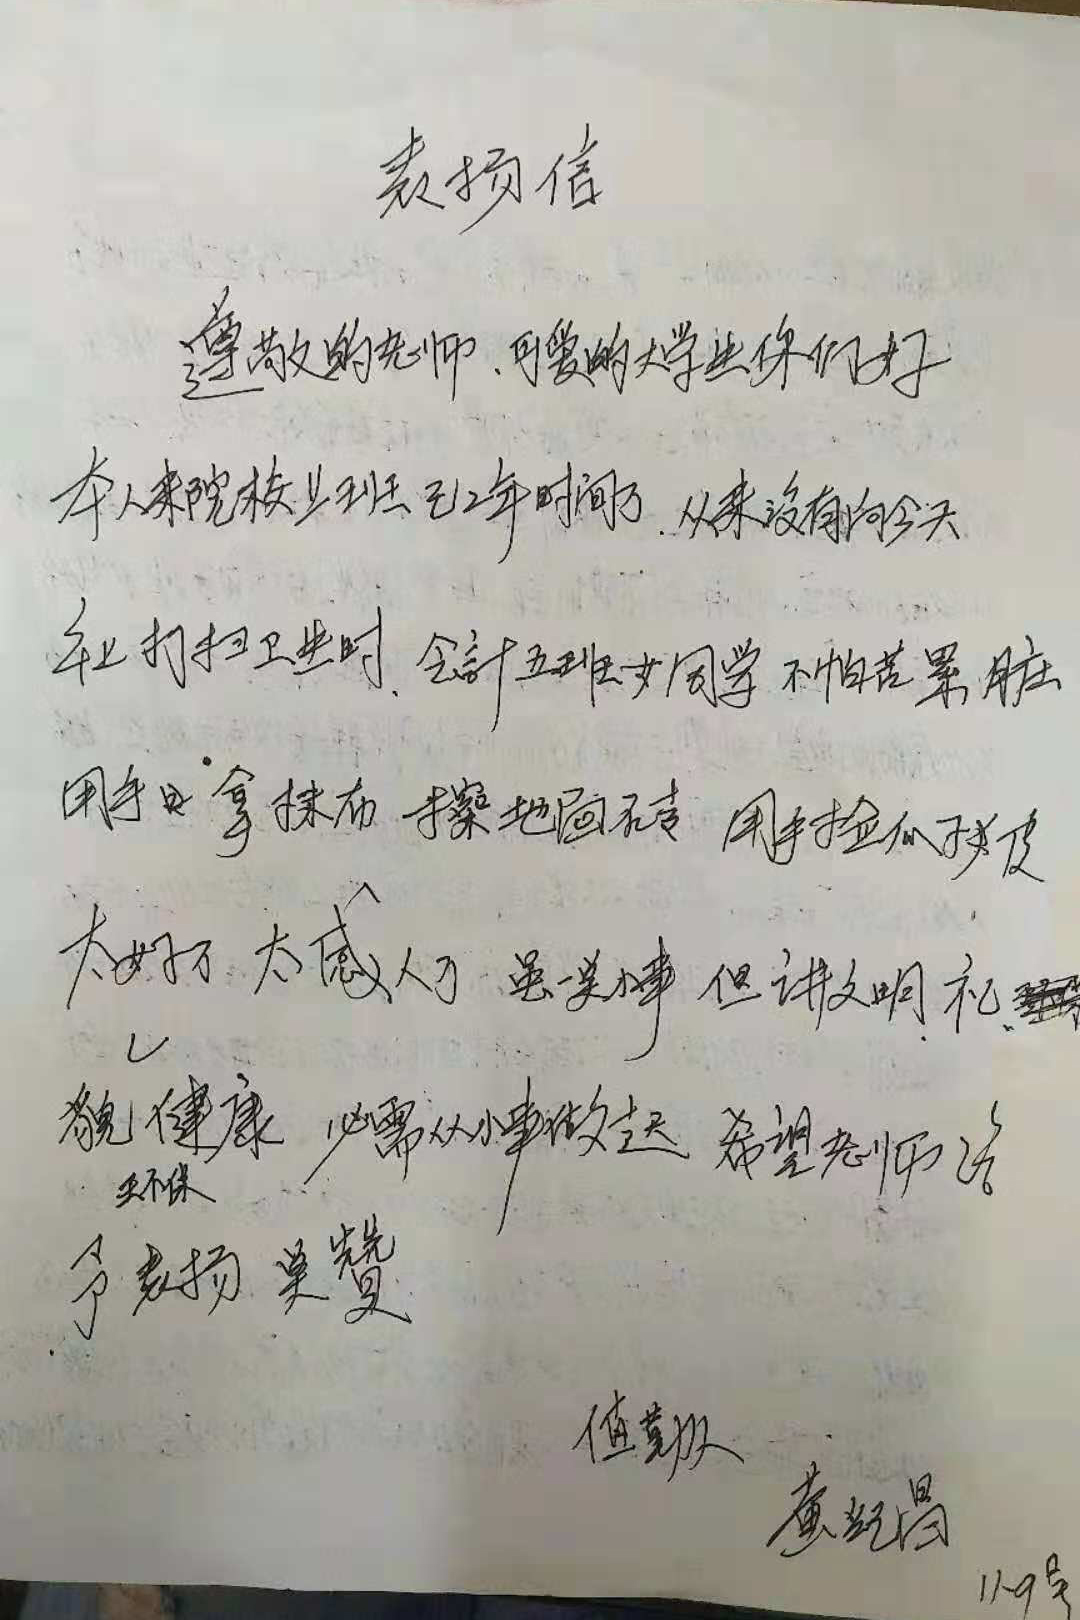 表扬信
遵敬的老师、可爱的大学生你们好
本人来院校上班已2年时间了.从来没有向今天
早上打扫卫生时、会計五班女同学不怕苦累脏
用手 拿抹布 擦地面瓷砖 用手捡瓜子皮
太好了 太感人了 虽一英小事 但讲文明.礼.
貌 健康 必需从小事做起 希望老师给
环保
予表扬 奖赞
值勤队
黄纪昌
11-9号